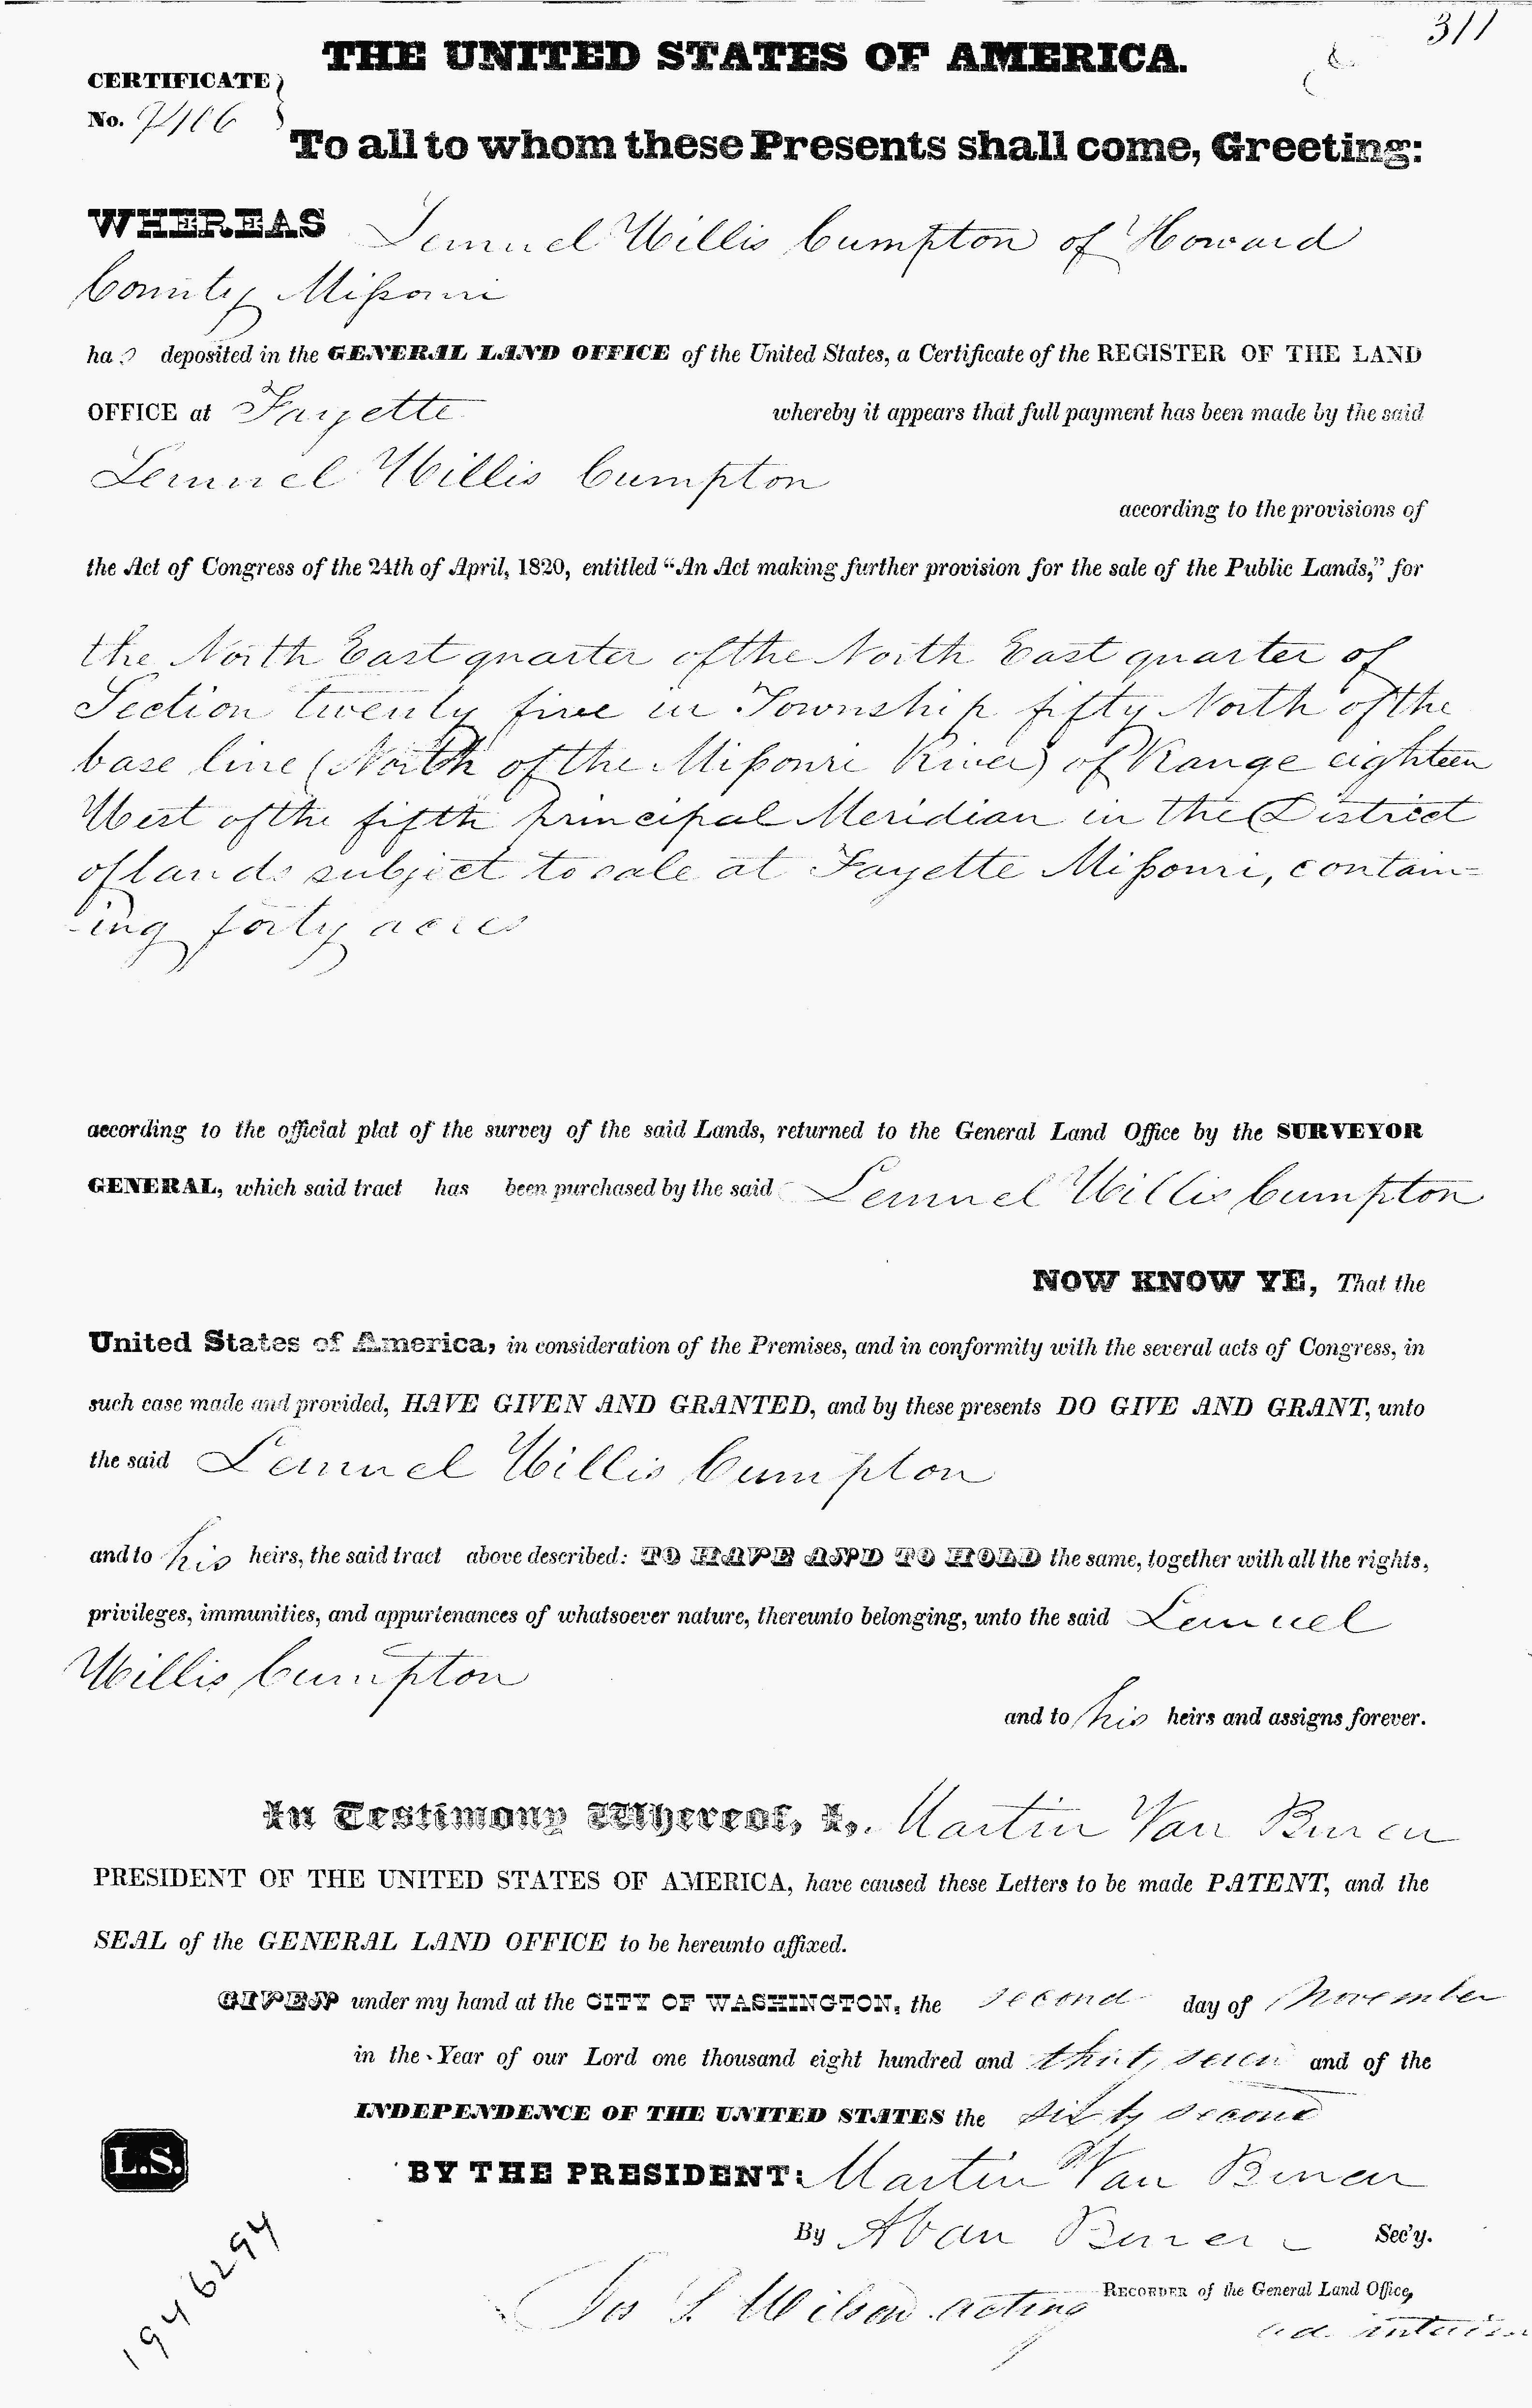 311
THE UNITED STATES OF AMERICA.
CERTIFICATE
No.
To all to whom these Presents shall come, Greeting:
WHEREAS Lemuel Willis Cumpton of Howard
County Missouri
has deposited in the GENERAL LAND OFFICE of the United States, a Certificate of the REGISTER OF THE LAND
OFFICE at Fayette whereby it appears that full payment has been made by the said
Lemuel Willis Cumpton
according to the provisions of
the Act of Congress of the 24th of April, 1820, entitled “An Act making further provision for the sale of the Public Lands,” for
the North East quarter of the North East quarter of
Section twenty five in Township fifty North of the
base line (North of the Missouri River) of Range eighteen
West of the fifth principal Meridian in the District
of lands subject to sale at Fayette Missouri, contain=
-ing forty acres
according to the official plat of the survey of the said Lands, returned to the General Land Office by the SURVEYOR
GENERAL, which said tract has been purchased by the said Lemuel Willis Cumpton
NOW KNOW YE, That the
United States of America, in consideration of the Premises, and in conformity with the several acts of Congress, in
such case made and provided, HAVE GIVEN AND GRANTED, and by these presents DO GIVE AND GRANT, unto
the said Lemuel Willis Cumpton
and to his heirs, the said tract above described: TO HAVE AND TO HOLD the same, together with all the rights,
privileges, immunities, and appurtenances of whatsoever nature, thereunto belonging, unto the said Lemuel
Willis Cumpton
and to his heirs and assigns forever.
In Testimony Whereof, I, Martin Van Buren
PRESIDENT OF THE UNITED STATES OF AMERICA, have caused these Letters to be made PATENT, and the
SEAL of the GENERAL LAND OFFICE to be hereunto affixed.
GIVEN under my hand at the CITY OF WASHINGTON, the second day of November
in the Year of our Lord one thousand eight hundred and thirty seven and of the
INDEPENDENCE OF THE UNITED STATES the sixty second
L.S.
BY THE PRESIDENT: Martin Van Buren
By A Van Buren Sec'y.
Jos S. Wilson acting RECORDER of the General Land Office,
ad interim
1946294